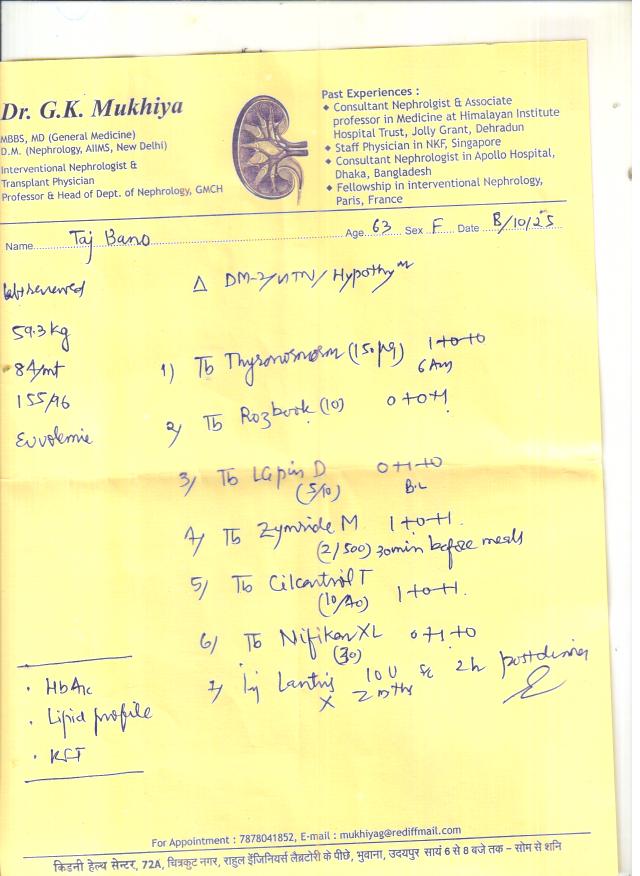 Dr. G.K. Mukhiya
MBBS, MD (General Medicine)
D.M. (Nephrology, AIIMS, New Delhi)
Interventional Nephrologist &
Transplant Physician
Professor & Head of Dept. of Nephrology, GMCH
Past Experiences :
◆ Consultant Nephrolgist & Associate
professor in Medicine at Himalayan Institute
Hospital Trust, Jolly Grant, Dehradun
◆ Staff Physician in NKF, Singapore
◆ Consultant Nephrologist in Apollo Hospital,
Dhaka, Bangladesh
◆ Fellowship in interventional Nephrology,
Paris, France
Name Taj Bano Age 63 Sex F Date 8/10/25
Δ DM-2/HTN/Hypothym
reviewed
59.3 kg
84/mt
155/96
Euvolemic
1) Tb Thyronorm (150 µg) 1+0+0
6 Am
2) Tb Rozbook (10) 0+0+1
3) Tb D 0+1+0
(5/10) B.L
4) Tb M 1+0+1
(2/500) 30min before meals
5) Tb T
(10/40) 1+0+1
6) Tb XL 0+1+0
(30)
7) Inj Lantus 10 U sc 2h post dinner
X 2 mths
• HbA1c
• Lipid profile
• KFT
For Appointment : 7878041852, E-mail : mukhiyag@rediffmail.com
किडनी हेल्थ सेन्टर, 72A, चित्रकुट नगर, राहुल इंजिनियर्स लैब्रटोरी के पीछे, भुवाना, उदयपुर सायं 6 से 8 बजे तक – सोम से शनि